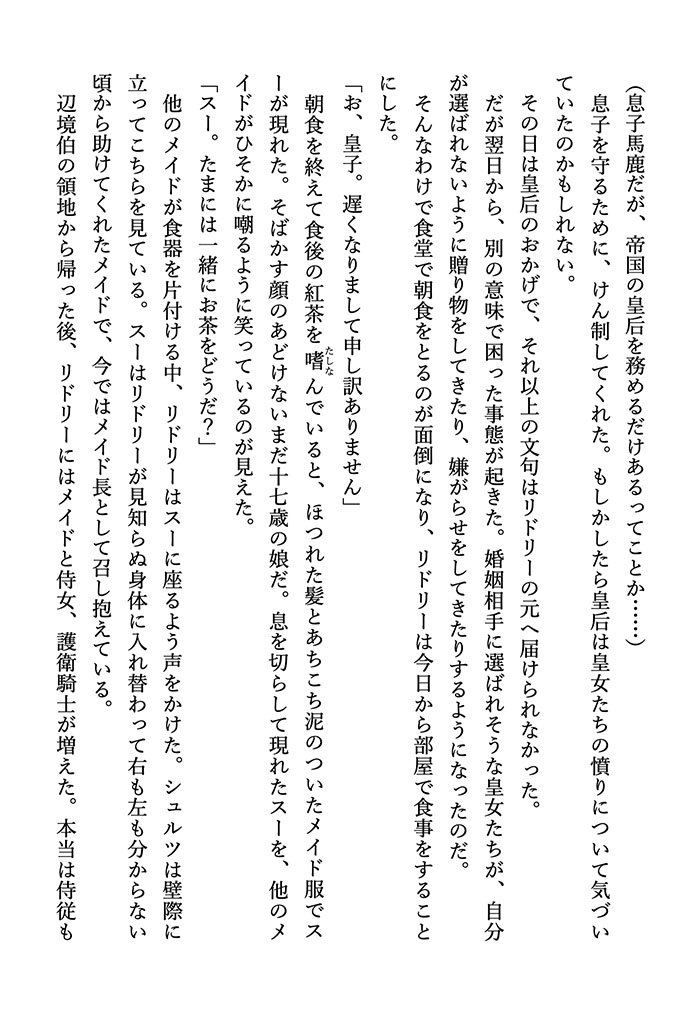 （息子馬鹿だが、帝国の皇后を務めるだけあるってことか……）
　息子を守るために、けん制してくれた。もしかしたら皇后は皇女たちの憤りについて気づい
ていたのかもしれない。
　その日は皇后のおかげで、それ以上の文句はリドリーの元へ届けられなかった。
　だが翌日から、別の意味で困った事態が起きた。婚姻相手に選ばれそうな皇女たちが、自分
が選ばれないように贈り物をしてきたり、嫌がらせをしてきたりするようになったのだ。
　そんなわけで食堂で朝食をとるのが面倒になり、リドリーは今日から部屋で食事をすること
にした。
「お、皇子。遅くなりまして申し訳ありません」
　朝食を終えて食後の紅茶を嗜んでいると、ほつれた髪とあちこち泥のついたメイド服でス
たしな
ーが現れた。そばかす顔のあどけないまだ十七歳の娘だ。息を切らして現れたスーを、他のメ
イドがひそかに嘲るように笑っているのが見えた。
「スー。たまには一緒にお茶をどうだ？」
　他のメイドが食器を片付ける中、リドリーはスーに座るよう声をかけた。シュルツは壁際に
立ってこちらを見ている。スーはリドリーが見知らぬ身体に入れ替わって右も左も分からない
頃から助けてくれたメイドで、今ではメイド長として召し抱えている。
　辺境伯の領地から帰った後、リドリーにはメイドと侍女、護衛騎士が増えた。本当は侍従も